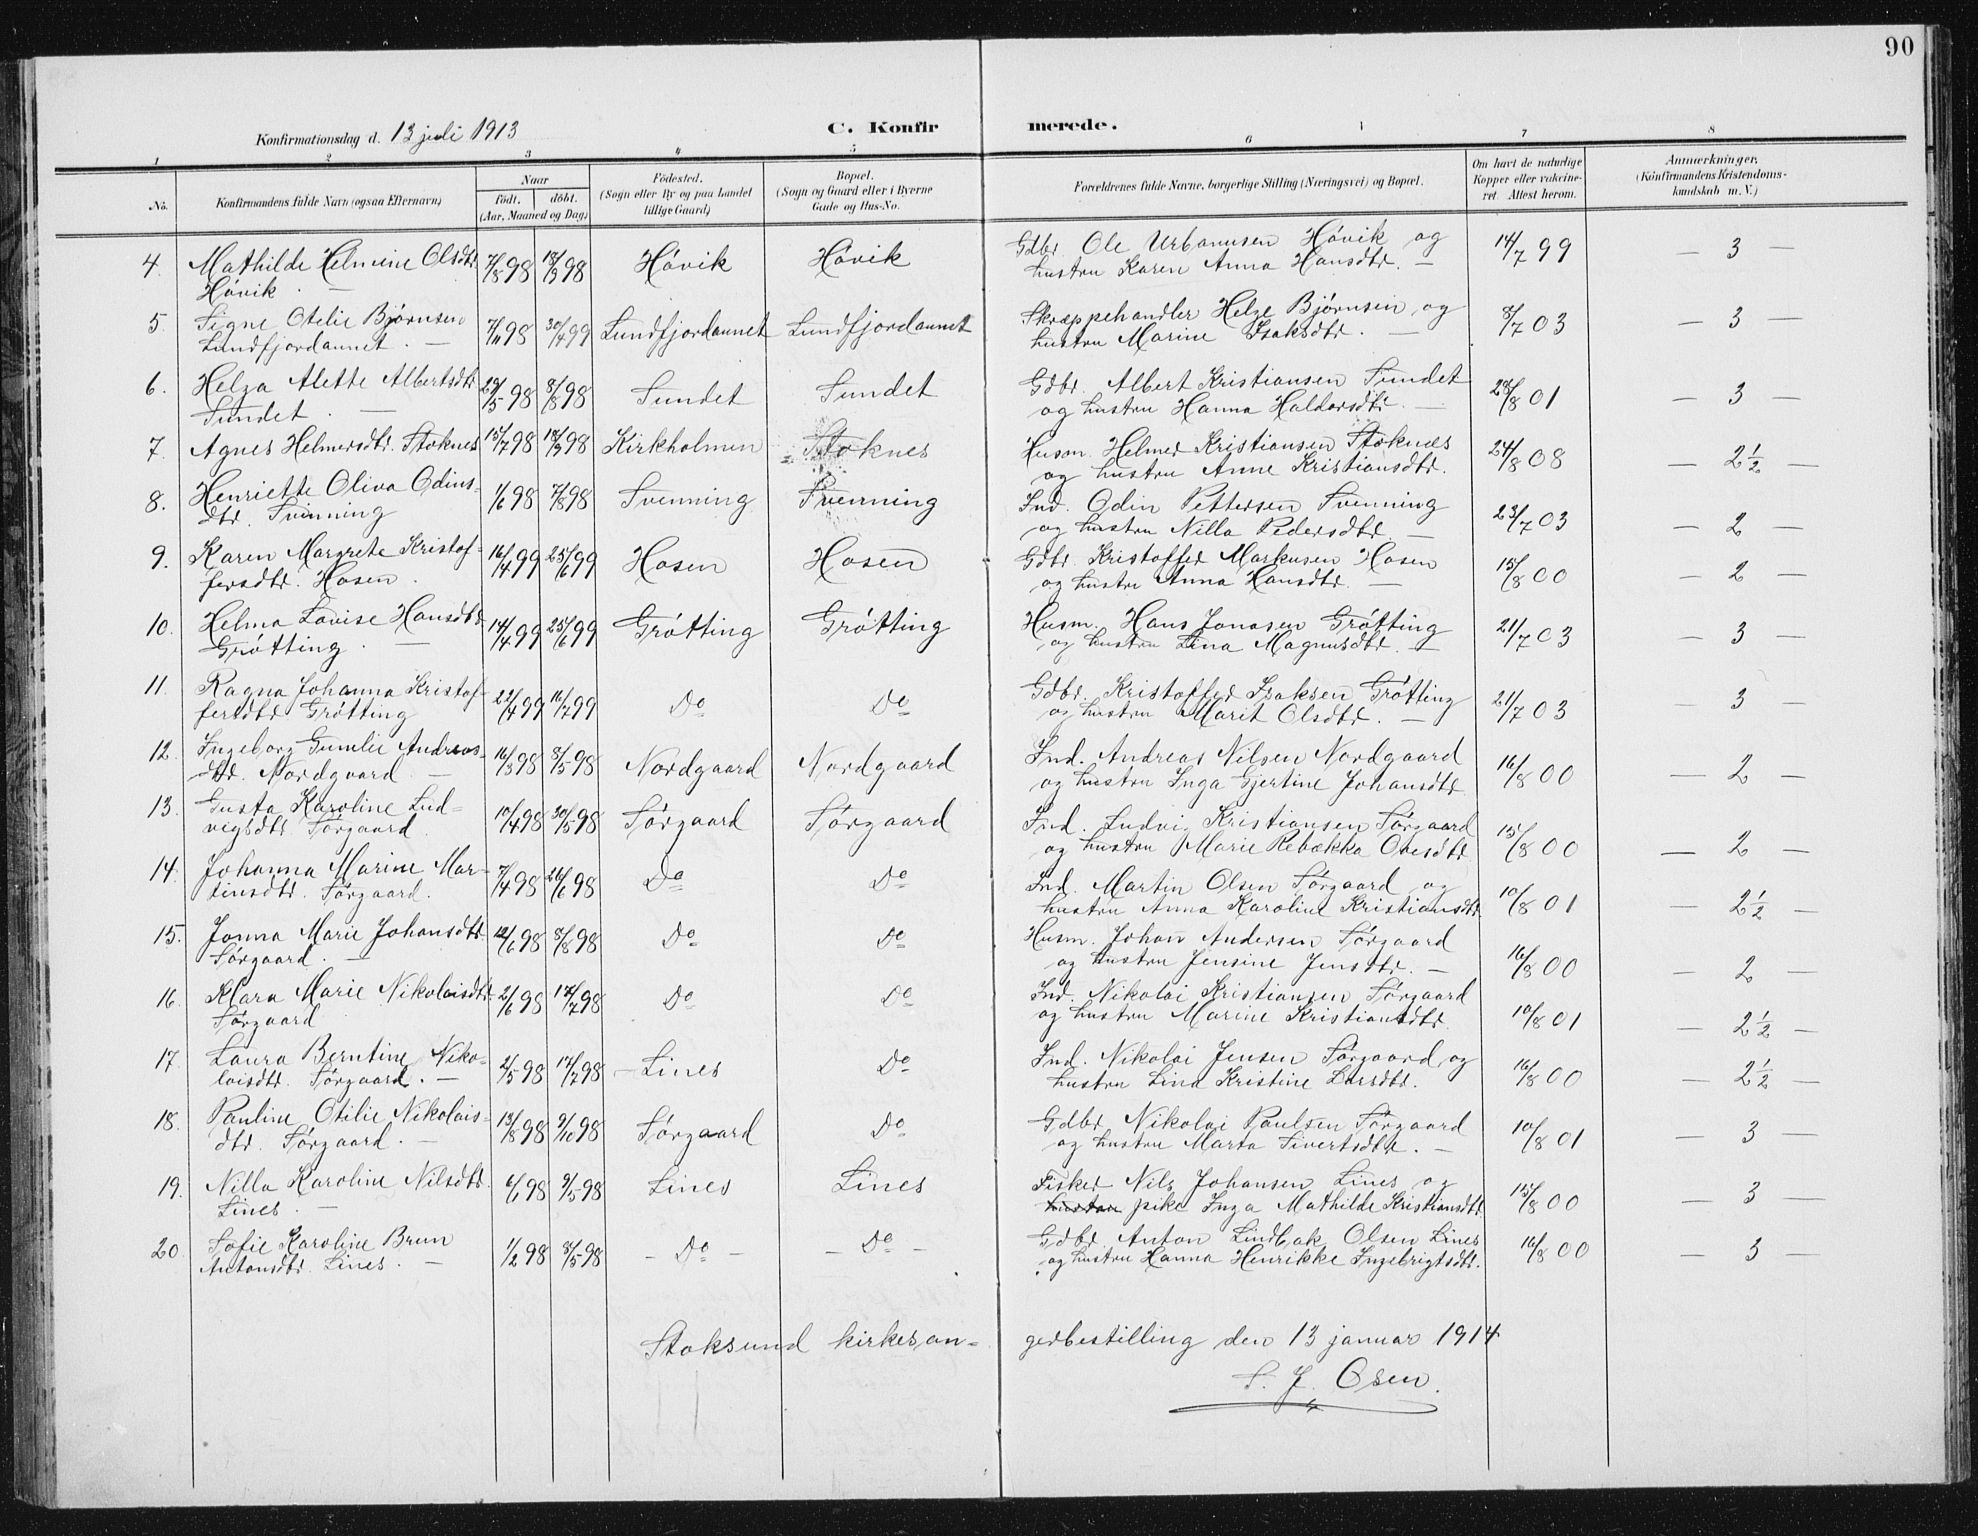 90
Konfirmationsdag d. 13 juli 1913
C. Konfirmerede.
1 2 3 4 5 6 7 8
No. | Konfirmandens fulde Navn (ogsaa Efternavn) | Naar født. døbt. (Aar, Maaned og Dag) | Fødested. (Sogn eller By og paa Landet tillige Gaard) | Bopæl. (Sogn og Gaard eller i Byerne Gade og Hus-No. | Forældrenes fulde Navne, borgerlige Stilling (Næringsvei) og Bopæl. | Om havt de naturlige Kopper eller vakcineret. Attest herom. | Anmærkninger. (Konfirmandens Kristendomskundskab m. V.)
4. Mathilde Helmine Olsdtr. | 7/8 98 | 18/9 98 | Høvik | Høvik | Gdbr. Ole Urbanusen Høvik og | 14/7 99 | — 3 —
Høvik. — | hustru Karen Anna Hansdtr. —
5. Signe Otelie Bjørnsen | 7/11 98 | 30/4 99 | Lundfjordaunet | Lundfjordaunet | Skræppehandler Helge Bjørnsen og | 8/7 03 | — 3 —
Lundfjordaunet. — | hustru Marine Isaksdtr. —
6. Helga Alette Albertsdtr | 29/5 98 | 8/8 98 | Sundet | Sundet | Gdbr. Albert Kristiansen Sundet | 28/8 01 | — 3 —
Sundet. — | og hustru Hanna Haldorsdtr. —
7. Agnes Helmersdtr. Stoknes | 15/7 98 | 18/9 98 | Kirkholmen | Stoknes | Husm. Helmer Kristiansen Stoknes | 24/8 08 | — 2½ —
og hustru Anne Kristiansdtr.
8. Henriette Oliva Odins- | 1/6 98 | 7/8 98 | Svenning | Svenning | Ind. Odin Pettersen Svenning | 23/7 03 | — 2 —
dtr. Svenning | og hustru Nilla Pedersdtr. —
9. Karen Margrete Kristof- | 16/4 99 | 25/6 99 | Hosen | Hosen | Gdbr. Kristoffer Markusen Hosen | 15/8 00 | — 2 —
fersdtr. Hosen. | og hustru Anna Hansdtr. —
10. Helma Lovise Hansdtr. | 14/4 99 | 25/6 99 | Grøtting | Grøtting | Husm. Hans Jonasen Grøtting | 21/7 03 | — 3 —
Grøtting. — | og hustru Lina Magnusdtr. —
11. Ragna Johanna Kristof- | 22/4 99 | 16/7 99 | Do | Do | Gdbr. Kristoffer Isaksen Grøtting | 21/7 03 | — 3 —
fersdtr Grøtting | og hustru Marit Olsdtr. —
12. Ingeborg Gunelie Andreas- | 16/3 98 | 8/5 98 | Nordgaard | Nordgaard | Ind. Andreas Nilsen Nordgaard | 16/8 00 | — 2 —
dtr. Nordgaard — | og hustru Inga Gjertine Johansdtr
13. Gusta Karoline Lud- | 10/4 98 | 30/5 98 | Sørgaard | Sørgaard | Ind. Ludvig Kristiansen Sørgaard | 15/8 00 | — 2 —
vigsdtr Sørgaard | og hustru Marie Rebækka Ovesdtr
14. Johanna Marine Mar- | 7/4 98 | 26/6 98 | Do | Do | Ind. Martin Olsen Sørgaard og | 10/8 01 | — 2½ —
tinsdtr. Sørgaard. | hustru Anna Karoline Kristiansdtr
15. Jonna Marie Johansdtr | 12/6 98 | 8/8 98 | Do | Do | Husm. Johan Andersen Sørgaard | 16/8 00 | — 2 —
Sørgaard. — | og hustru Jensine Jensdtr. —
16. Klara Marie Nikolaisdtr | 2/6 98 | 17/7 98 | Do | Do | Ind. Nikolai Kristiansen Sørgaard | 10/8 01 | — 2½ —
Sørgaard | og hustru Marine Kristiansdtr.
17. Laura Berntine Niko- | 2/5 98 | 17/7 98 | — Lines | Do | Ind. Nikolai Jensen Sørgaard og | 16/8 00 | — 2½ —
laisdtr. Sørgaard. — | hustru Lina Kristine Larsdtr.
18. Pauline Otilie Nikolais- | 13/8 98 | 9/10 98 | Sørgaard | Do | Gdbr Nikolai Paulsen Sørgaard | 10/8 01 | — 3 —
dtr. Sørgaard. — | og hustru Marta Sivertsdtr. —
19. Nilla Karoline Nilsdtr. | 6/1 98 | 9/5 98 | Lines | Lines | Fisker Nils Johansen Lines og | 15/8 00 | — 3 —
Lines. — | hustru pike Inga Mathilde Kristiansdtr
20. Sofie Karoline Brun | 1/2 98 | 8/5 98 | — Do — | — Do — | Gdbr Anton Lindbak Olsen Lines | 16/8 00 | — 3
Antonsdtr. Lines. — | og hustru Hanna Henrikke Ingebrigtsdtr.
Stoksund kirkesangerbestilling den 13 januar 1914
S. J. Osen.